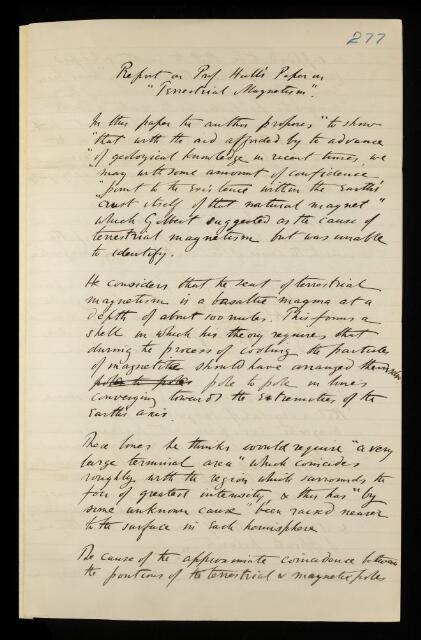 277
Report on Prof Hull's Paper on
"Terrestrial Magnetism".
In this paper the author proposes "to show
"that with the aid afforded by the advance
"of geological knowledge in recent times, we
"may with some amount of confidence
"point to the existence within the Earth's
"crust itself of that natural magnet"
which Gilbert suggested as the cause of
terrestrial magnetism but was unable
to identify.
He considers that the seat of terrestrial
magnetism is a basaltic magma at a
depth of about 100 miles. This forms a
shell in which his theory requires that
during the process of cooling the particles
of magnetite should have arranged themselves
pole to pole in lines
converging towards the extremities of the
Earth's axis.
These lines he thinks would require "a very
large terminal area" which coincides
roughly with the region which surrounds the
foci of greatest intensity, & this has "by
some unknown cause" been raised nearer
to the surface in each hemisphere
The cause of the approximate coincidence between
the positions of the terrestrial & magnetic poles